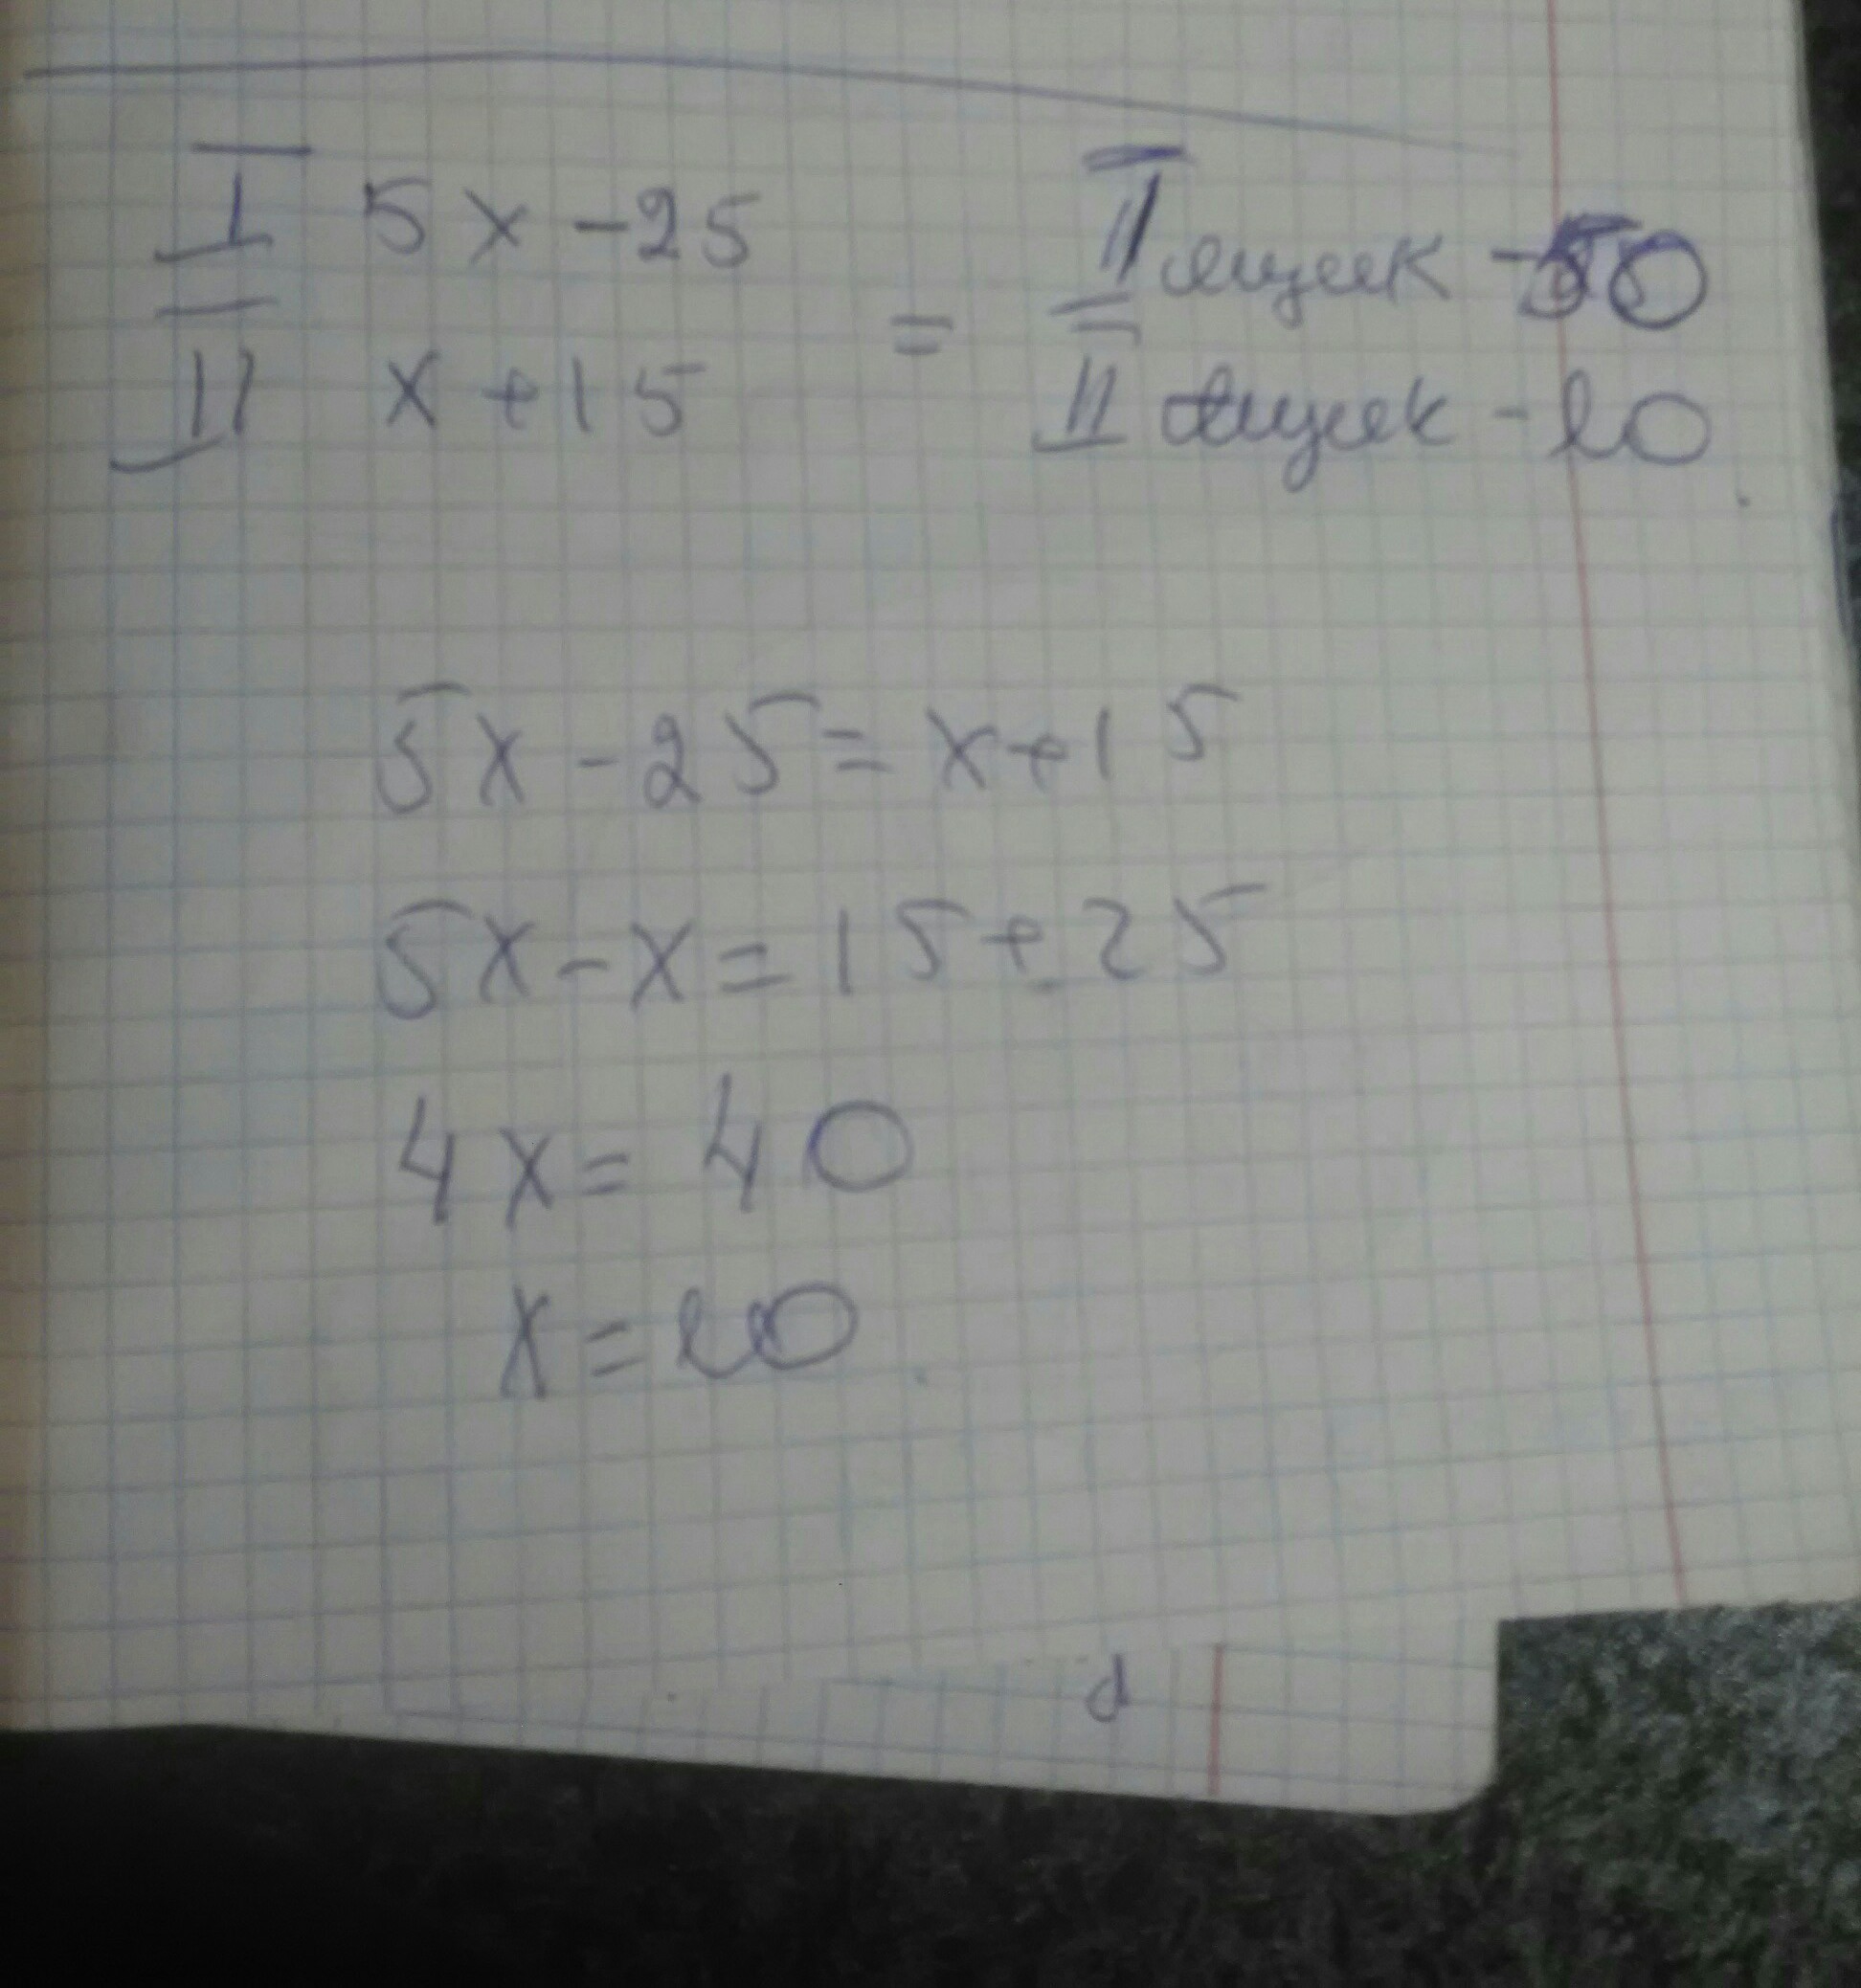 I 5x-25 = I ящик -50
II x+15 II ящик -10
5x-25=x+15
5x-x=15+25
4x=40
x=10
d